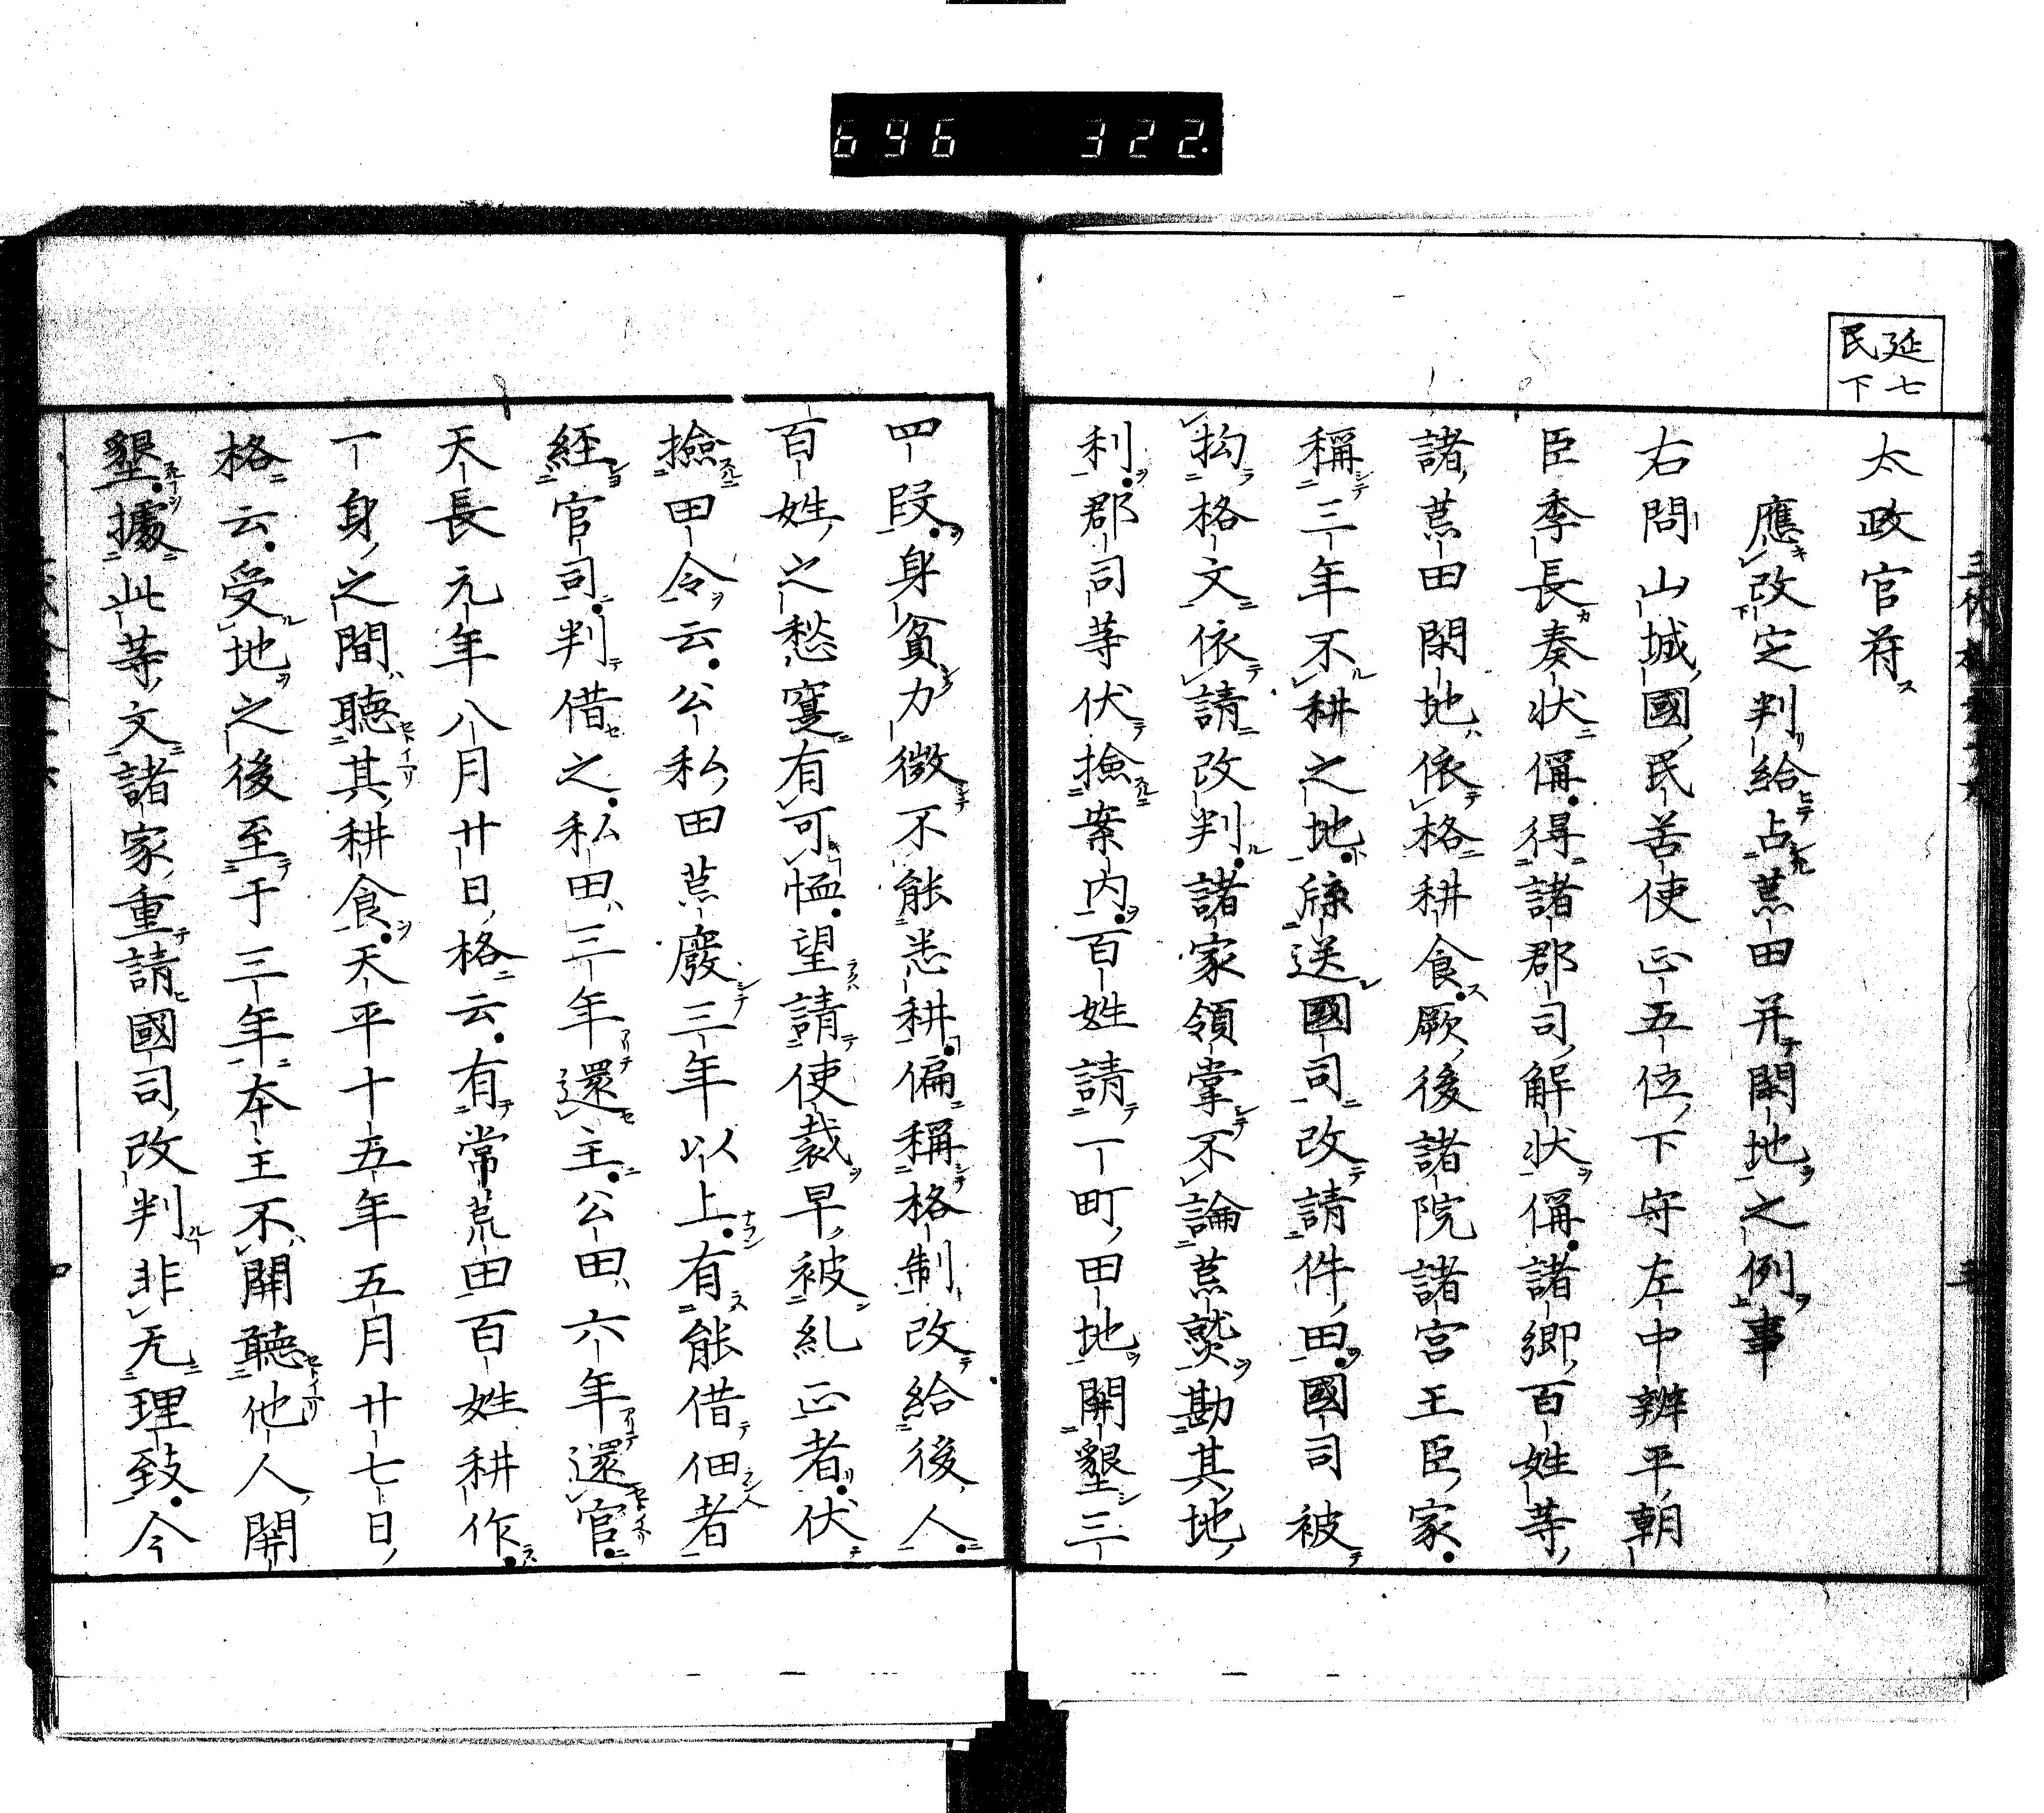 696 322.
延七
民下
太政官符
應改定判給占荒田并閑地之例事
右問山城國民苦使正五位下守左中辨平朝
臣季長奏状偁得諸郡司解状偁諸郷百姓等
諸荒田閑地依格耕食厥後諸院諸宮王臣家
稱三年不耕之地牒送國司改請件田國司被
拘格文依請改判諸家領掌不論荒熟勘其地
利郡司等伏撿案内百姓請一町田地開墾三
四段身貧力微不能悉耕偏稱格制改給後人
百姓之愁寔有可恤望請使裁早被糺正者伏
撿田令云公私田荒廢三年以上有能借佃者
經官司判借之私田三年還主公田六年還官
天長元年八月廿日格云有常荒田百姓耕作
一身之間聽其耕食天平十五年五月廿七日
格云受地之後至于三年本主不開聽他人開
墾據此等文諸家重請國司改判非无理致今